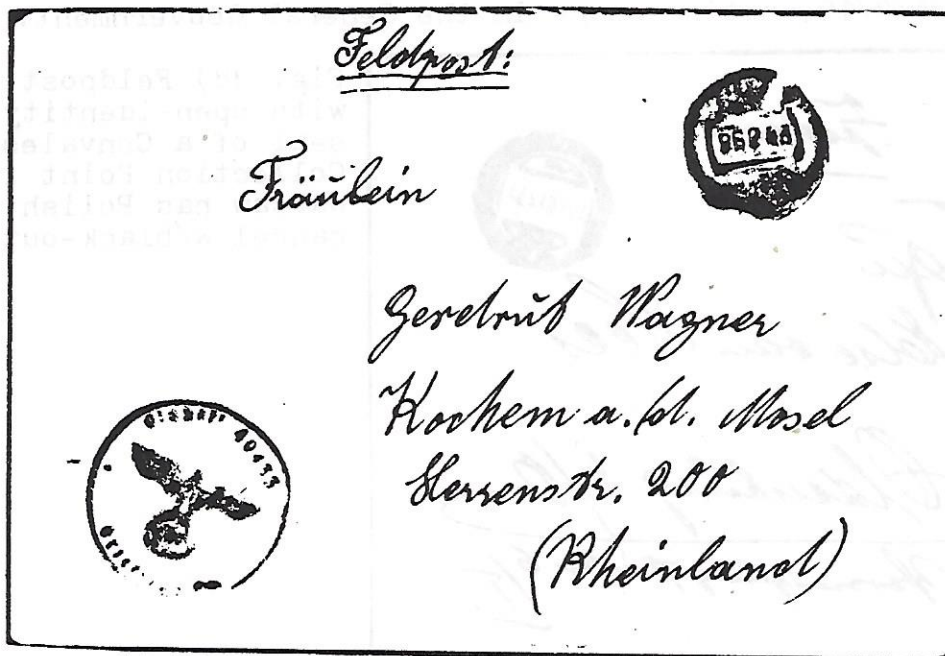 Feldpost:
Fräulein
Gerdrut Wagner
Kochem a./d. Mosel
Herrenstr. 200
(Rheinland)
40433